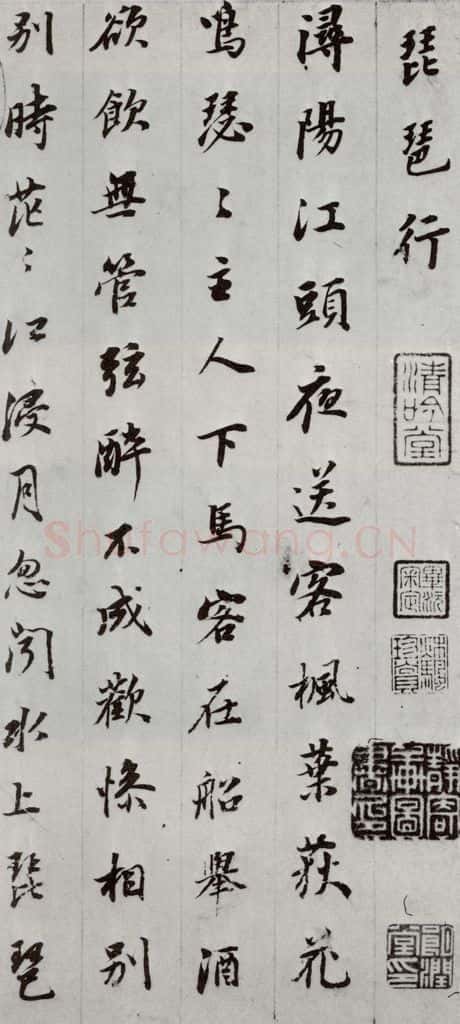 琵琶行
清吟堂
潯陽江頭夜送客楓葉荻花
鳴瑟〻主人下馬客在船舉酒
欲飲無管弦醉不成歡慘相別
別時茫〻江浸月忽聞水上琵琶
Shufawang.CN